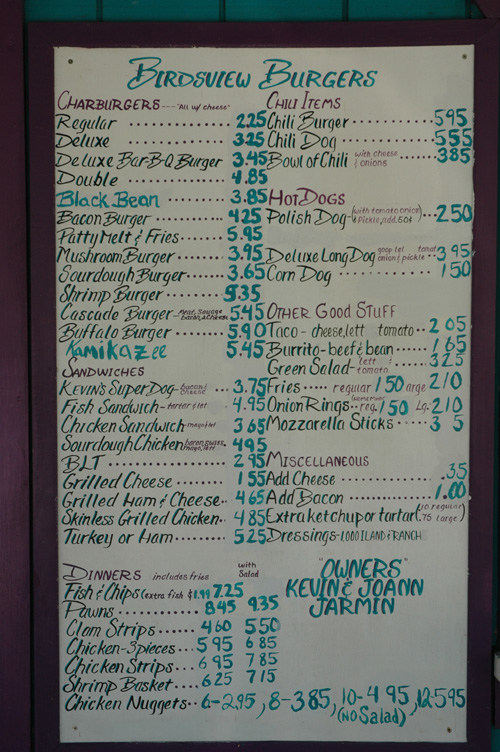 BIRDSVIEW BURGERS
CHARBURGERS --- "All w/ cheese"
Regular 2.25
Deluxe 3.25
Deluxe Bar-B-Q Burger 3.45
Double 4.85
Black Bean 3.85
Bacon Burger 4.25
Patty Melt & Fries 5.95
Mushroom Burger 3.95
Sourdough Burger 3.65
Shrimp Burger 5.35
Cascade Burger - Meat, Sausage bacon, 2 cheese 5.45
Buffalo Burger 5.90
Kamikazee 5.45
SANDWICHES
KEVIN'S SUPER DOG - bacon & cheese 3.75
Fish Sandwich - tartar & let 4.95
Chicken Sandwich - mayo & let 3.65
Sourdough Chicken bacon, swiss, mayo, lett 4.95
BLT 2.95
Grilled Cheese 1.55
Grilled Ham & Cheese 4.65
Skinless Grilled Chicken 4.85
Turkey or Ham 5.25
CHILI ITEMS
Chili Burger 5.95
Chili Dog 5.55
Bowl of Chili with cheese & onions 3.85
HOT DOGS
Polish Dog - (with tomato onion & Pickle, add .50¢) 2.50
Deluxe Long Dog tomat onion & pickle 3.95
Corn Dog 1.50
OTHER GOOD STUFF
Taco - cheese, lett tomato 2.05
Burrito - beef & bean 1.65
Green Salad - lett & tomato 3.25
Fries regular 1.50 large 2.10
Onion Rings - reg. 1.50 Lg. 2.10
Mozzarella Sticks 3 5
MISCELLANEOUS
Add Cheese .35
Add Bacon 1.00
Extra ketchup or tartar (.10 regular) (.75 large)
Dressings - 1,000 ILAND & RANCH
"OWNERS"
KEVIN & JOANN
JARMIN
DINNERS includes fries with Salad
Fish & Chips (extra fish $1.99 7.25
Pawns 8.45 9.35
Clam Strips 4.60 5.50
Chicken - 3 pieces 5.95 6.85
Chicken Strips 6.95 7.85
Shrimp Basket 6.25 7.15
Chicken Nuggets 6-2.95, 8-3.85, 10-4.95, 12-5.95
(NO Salad)